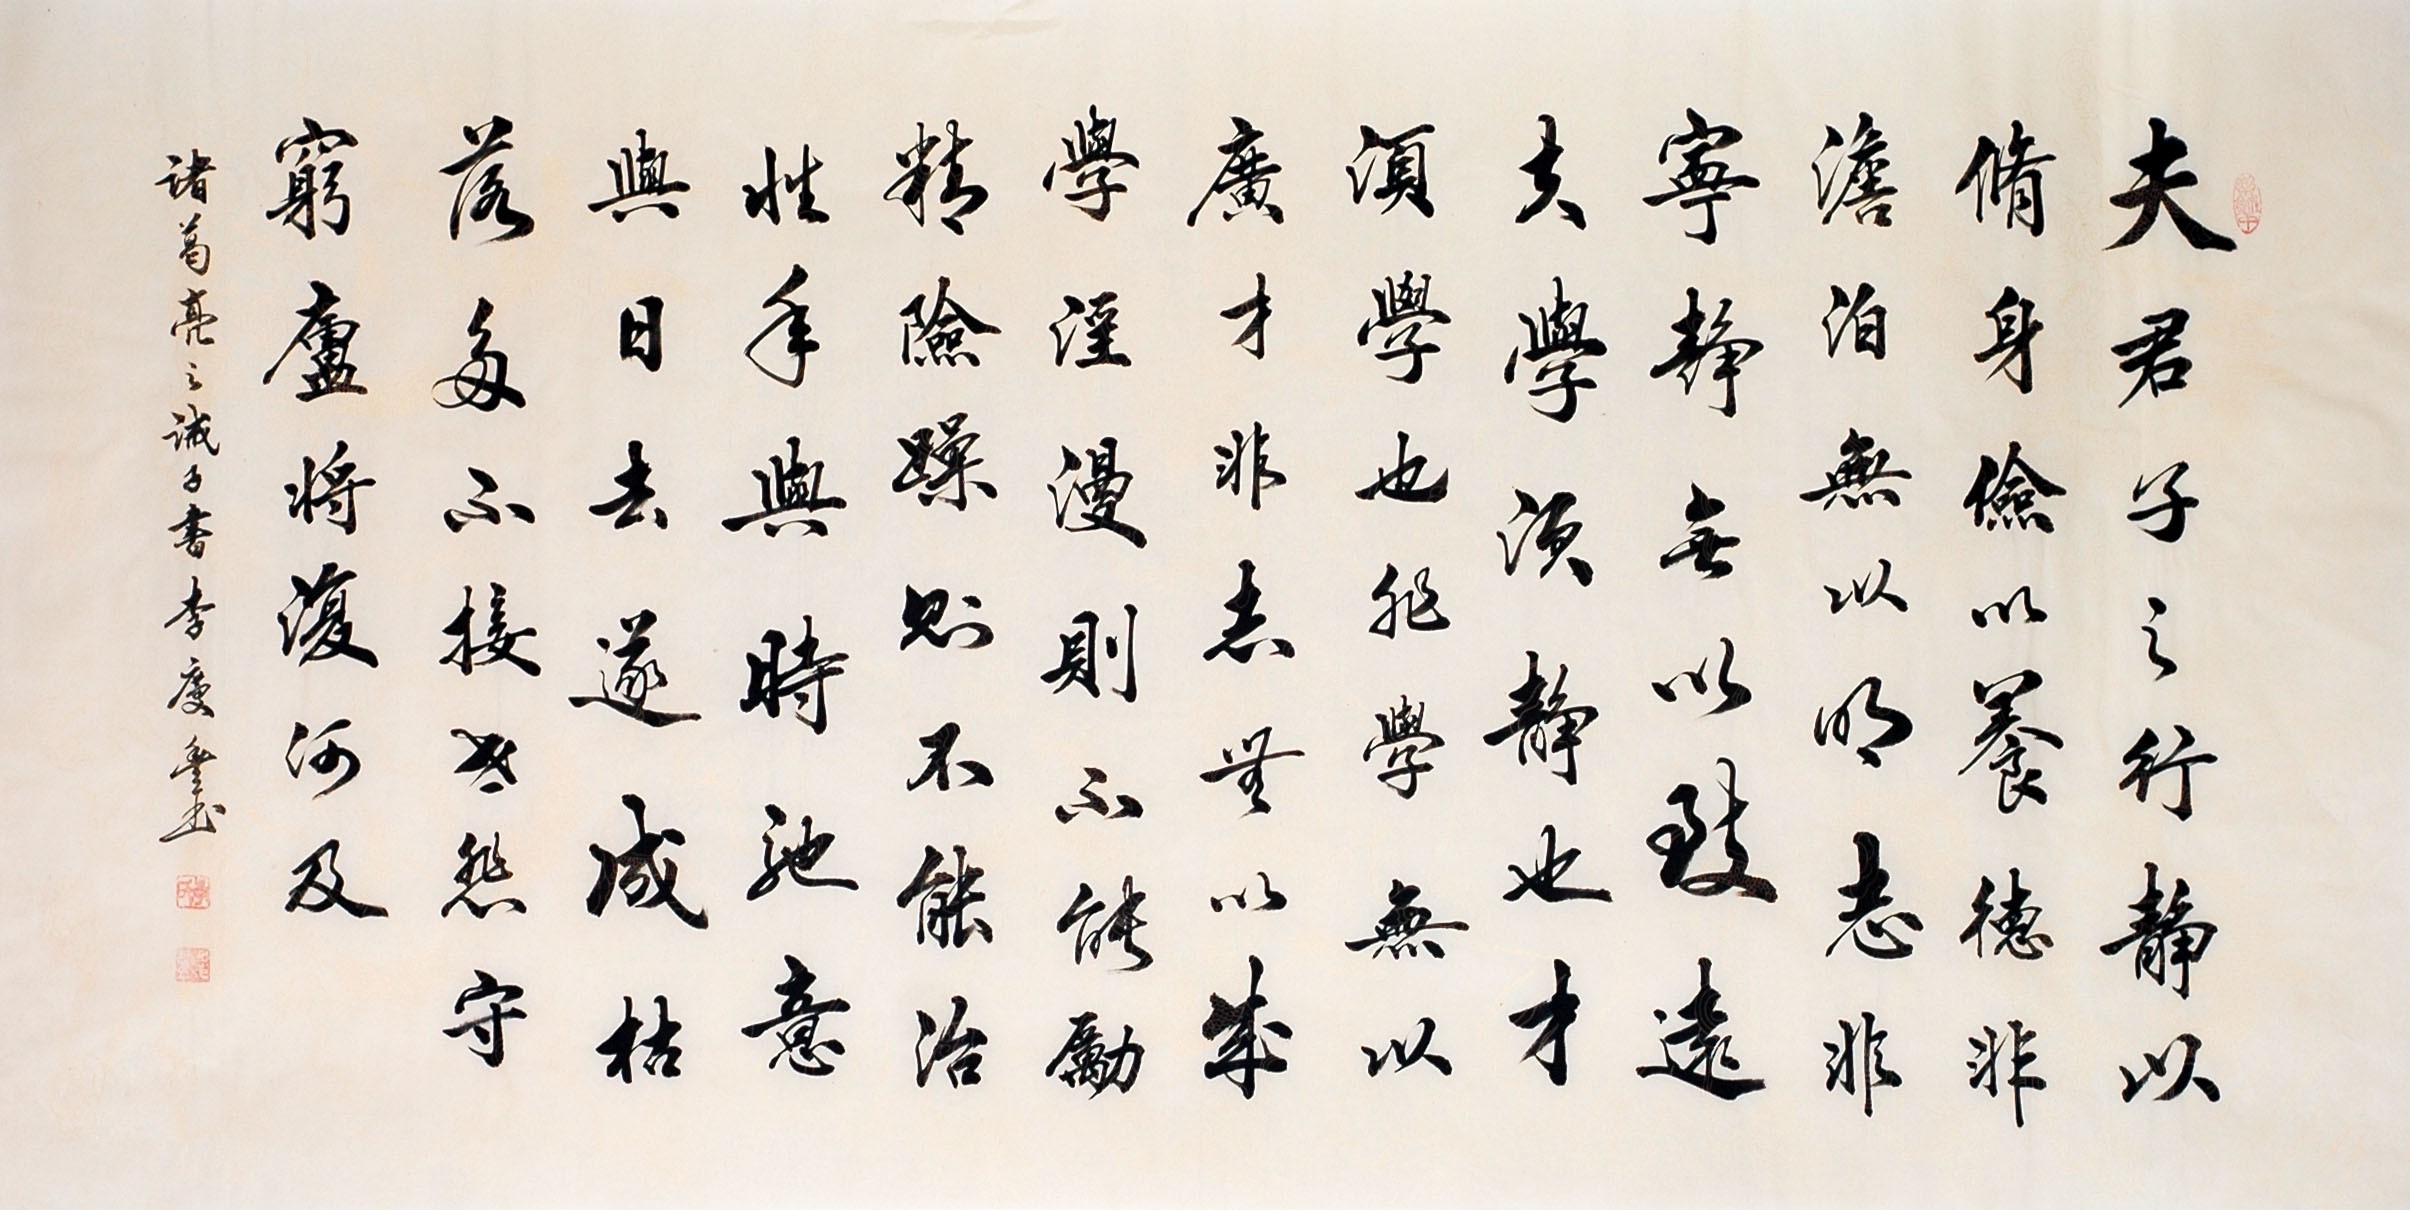 夫君子之行靜以
脩身儉以養德非
澹泊無以明志非
寧靜無以致遠
夫學須靜也才
須學也非學無以
廣才非志無以成
學淫漫則不能勵
精險躁則不能治
性年與時馳意
與日去遂成枯
落多不接世悲守
窮廬將復何及
諸葛亮之誡子書李慶豐書